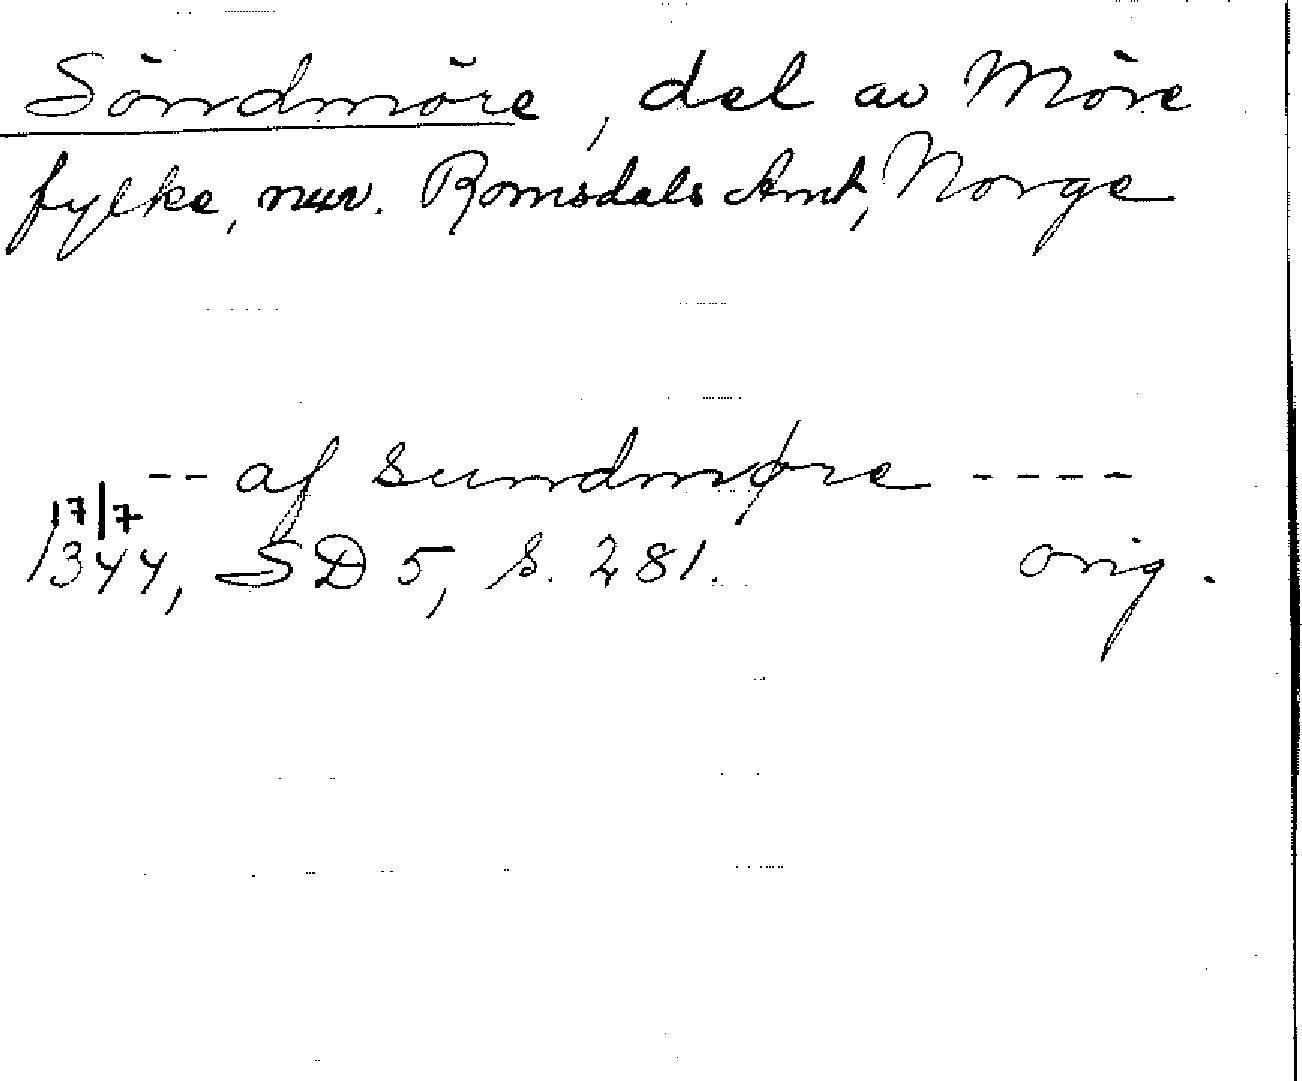 Söndmöre, del av Möre
fylke, nuv. Romsdals Amt, Norge
-- af sundmøre ----
17/7
1344, SD 5, s. 281. orig.